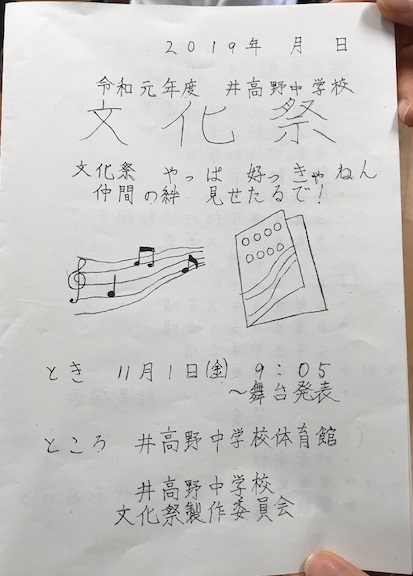 2019年 月 日
令和元年度 井高野中学校
文化祭
文化祭 やっぱ 好っきゃねん
仲間の絆 見せたるで!
とき 11月1日(金) 9:05
~舞台発表
ところ 井高野中学校体育館
井高野中学校
文化祭製作委員会